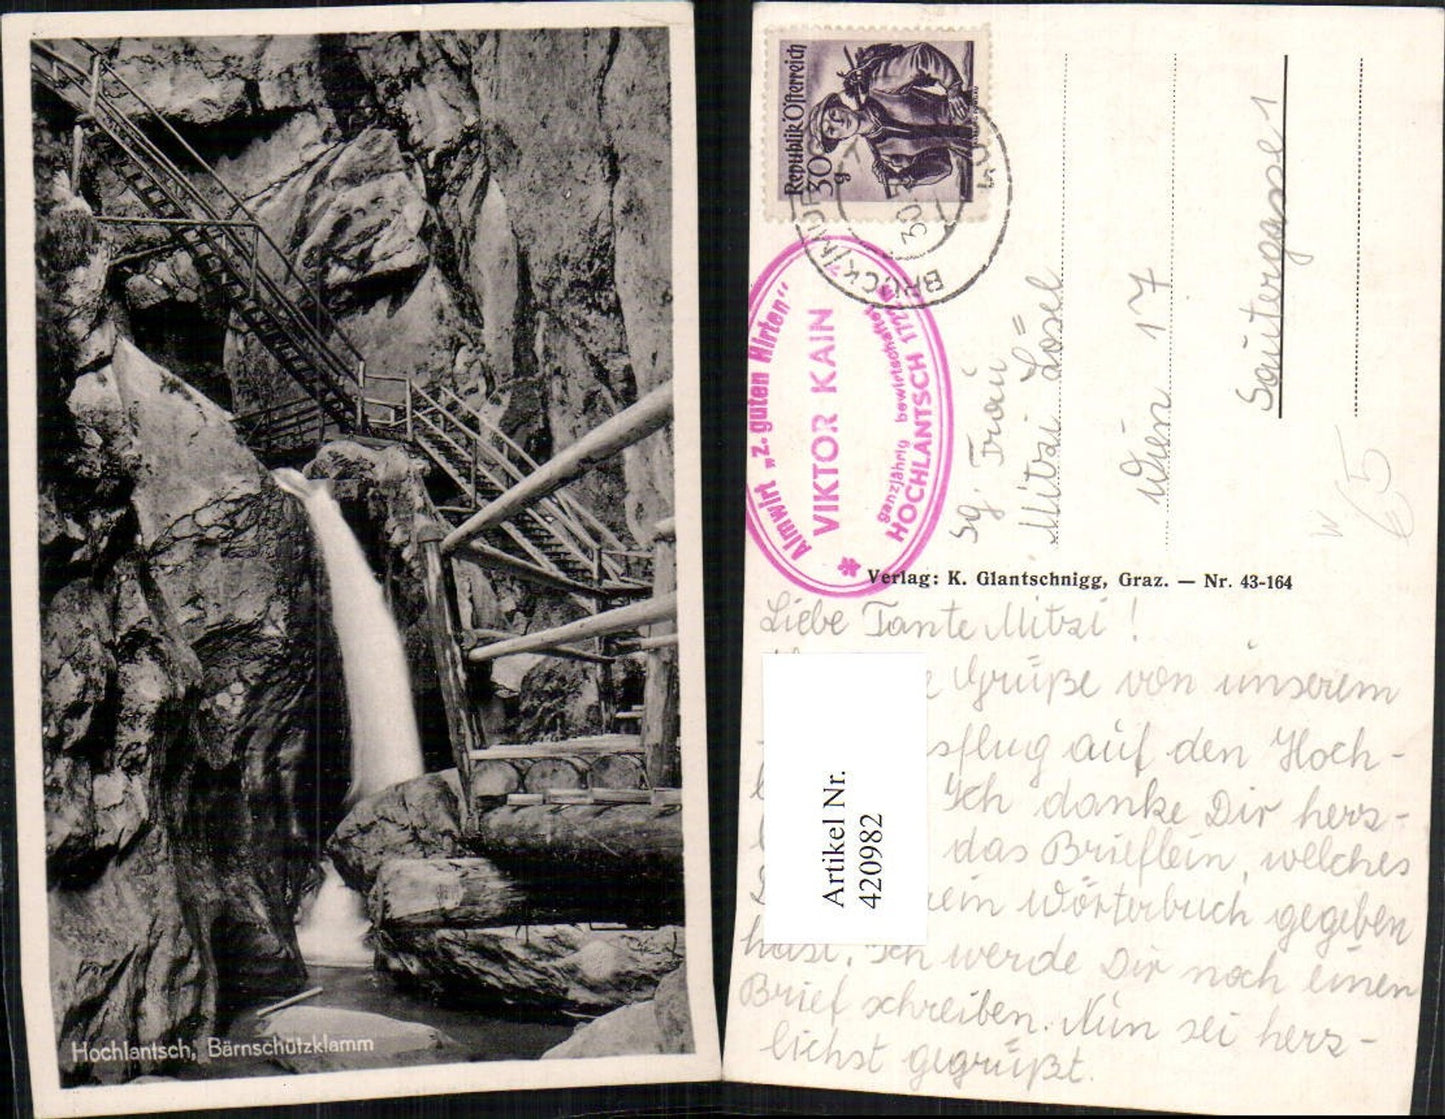 Hochlantsch, Bärnschützklamm
Republik Österreich
30 g
BRUCK/MUR
30
Almwirt „z. guten Hirten“
VIKTOR KAIN
ganzjährig bewirtschaftet
HOCHLANTSCH
Frau
Mitzi Lösel
Wien 17
Sautergasse 1
65
Verlag: K. Glantschnigg, Graz. — Nr. 43-164
Liebe Tante Mitzi!
Grüße von unserem
sflug auf den Hoch-
Ich danke Dir herz-
das Brieflein, welches
mein Wörterbuch gegeben
hast. Ich werde Dir noch einen
Brief schreiben. Nun sei herz-
lichst gegrüßt.
Artikel Nr.
420982